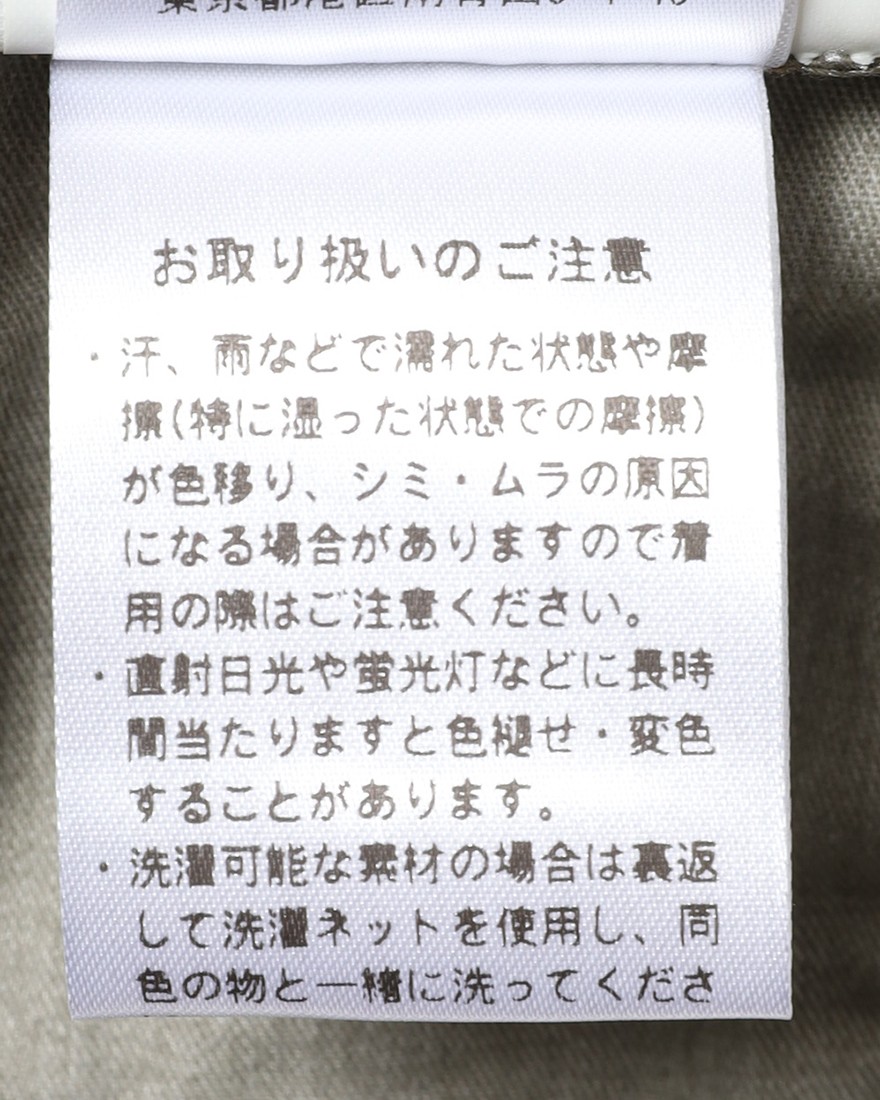 東京都港区南青山
お取り扱いのご注意
・汗、雨などで濡れた状態や摩
擦(特に湿った状態での摩擦)
が色移り、シミ・ムラの原因
になる場合がありますので着
用の際はご注意ください。
・直射日光や蛍光灯などに長時
間当たりますと色褪せ・変色
することがあります。
・洗濯可能な素材の場合は裏返
して洗濯ネットを使用し、同
色の物と一緒に洗ってくださ